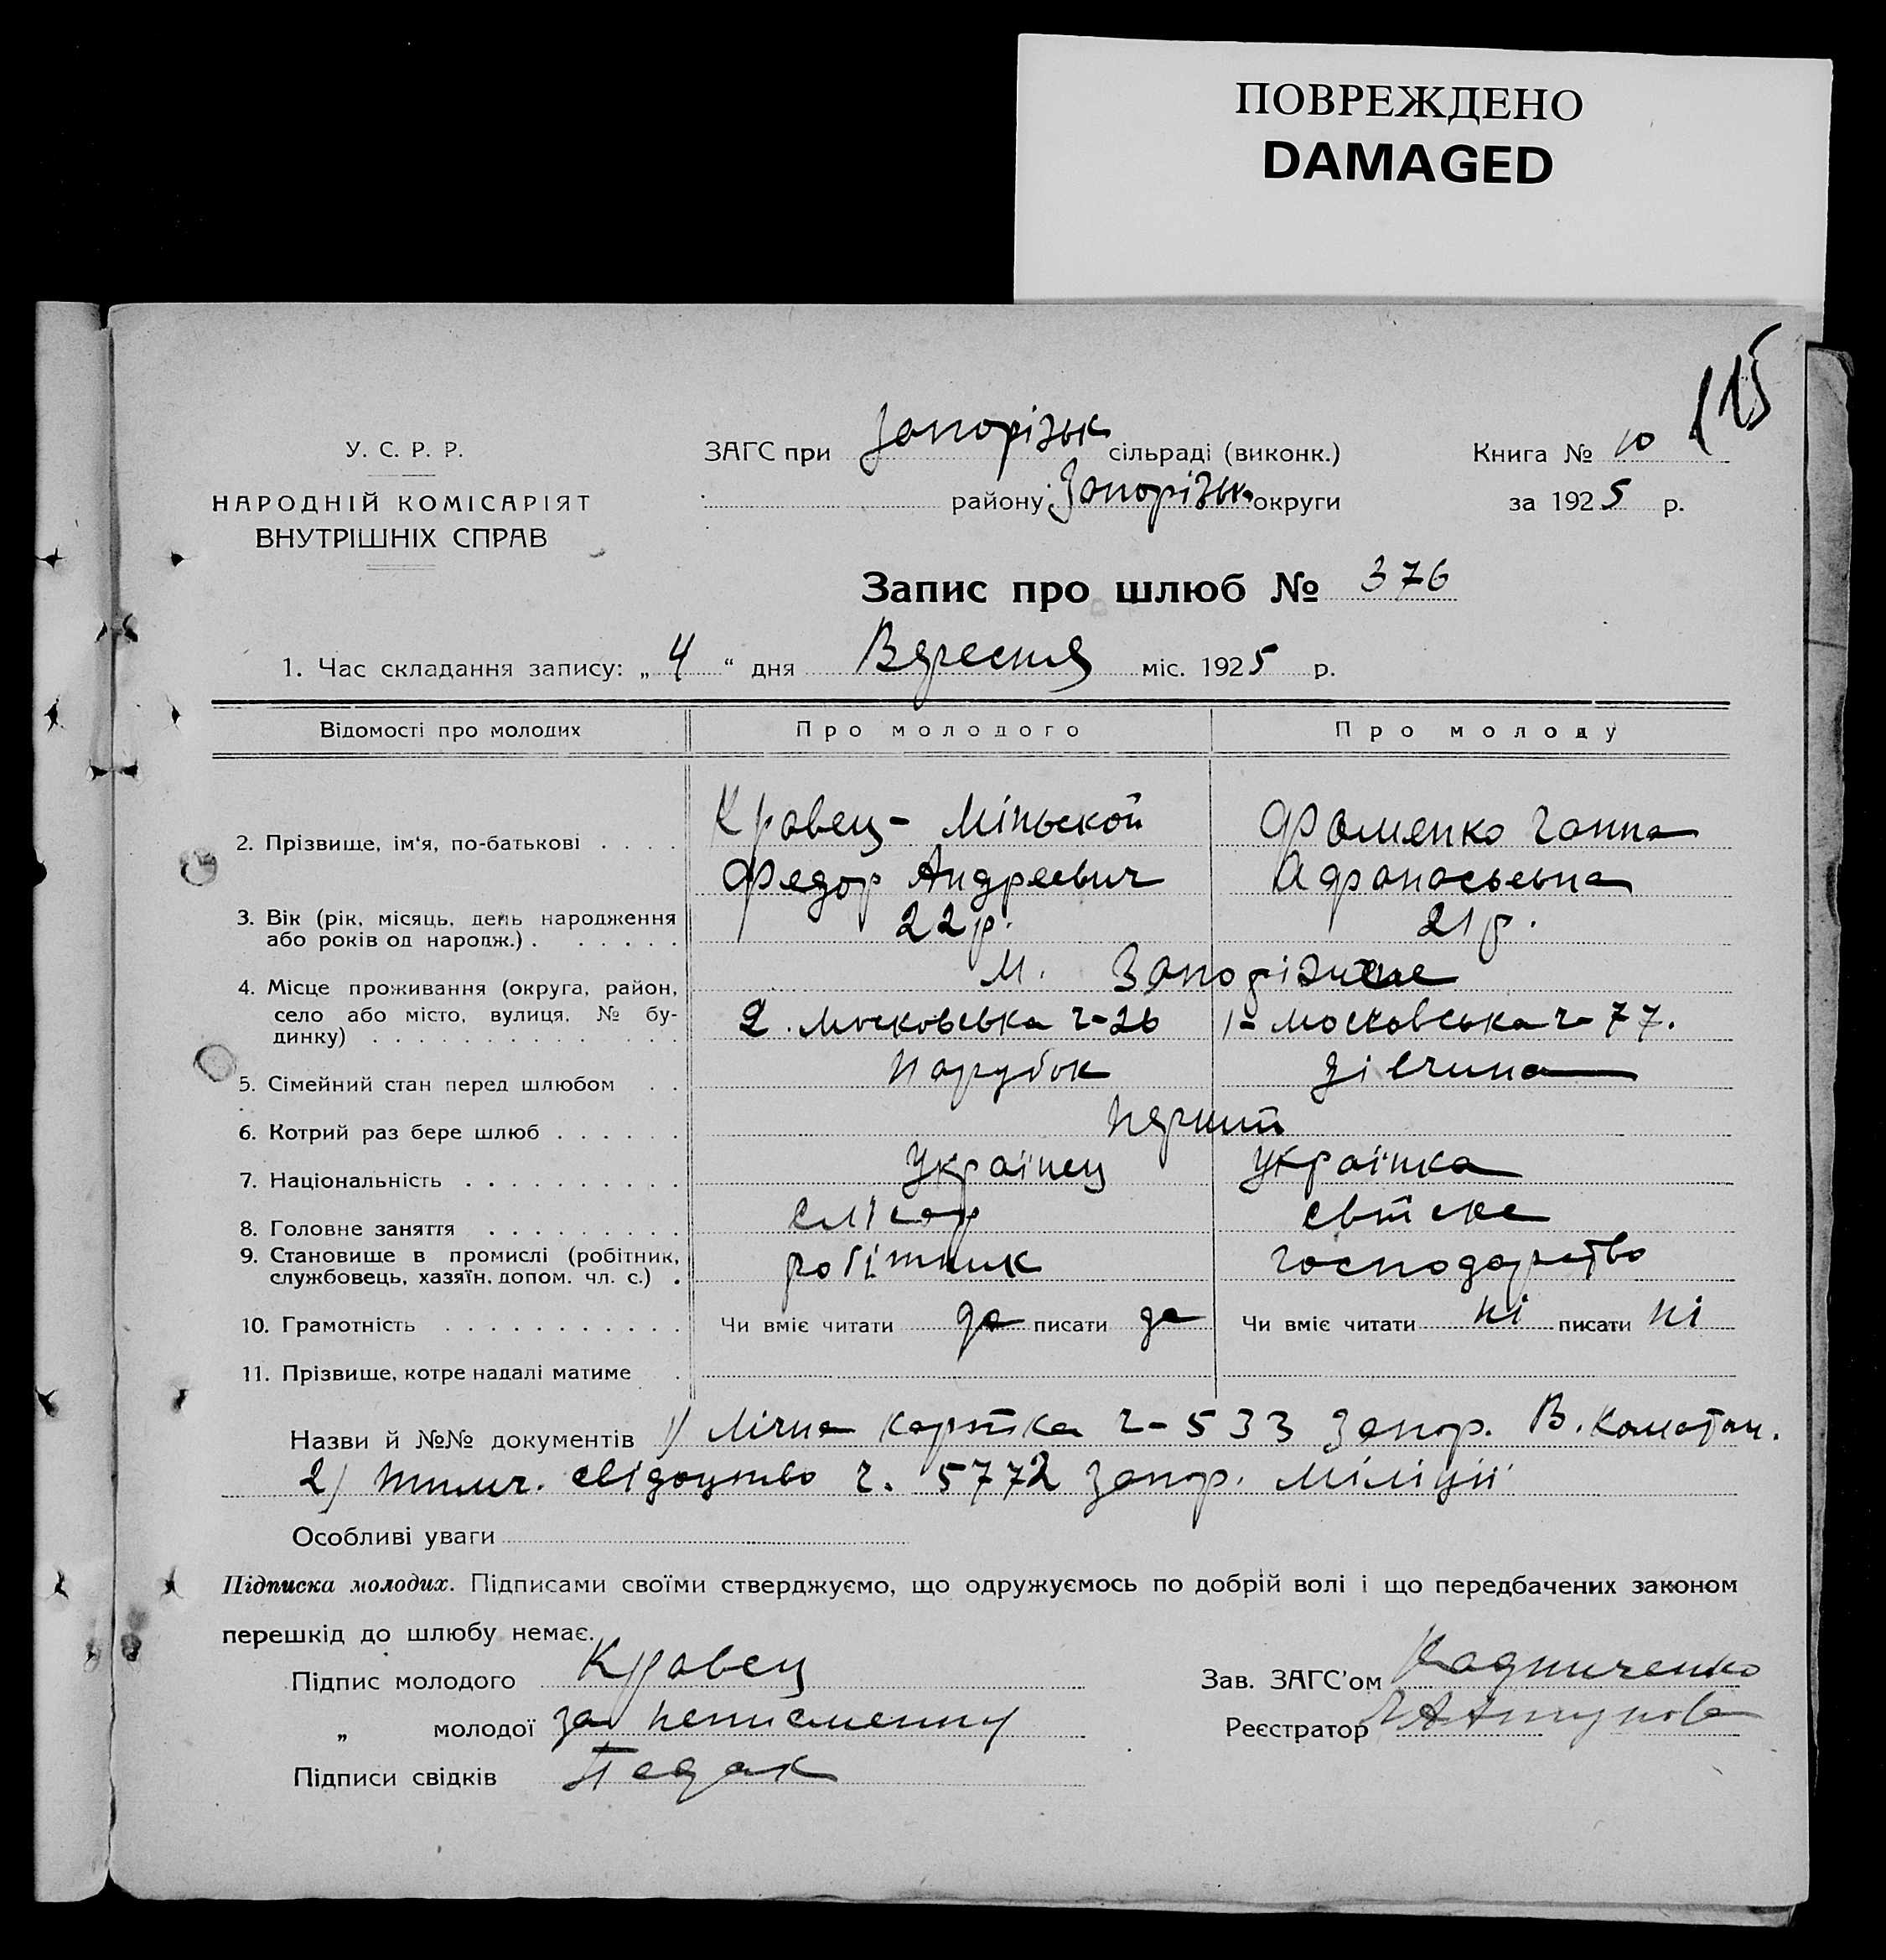 ПОВРЕЖДЕНО
DAMAGED
115
У. С. Р. Р.
НАРОДНІЙ КОМІСАРІЯТ
ВНУТРІШНІХ СПРАВ
ЗАГС при Запорізьк сільраді (виконк.)
району Запорізьк. округи
Книга № 10
за 1925 р.
Запис про шлюб № 376
1. Час складання запису: „ 4 “ дня Вересня міс. 1925 р.
Відомості про молодих Про молодого Про молоду
2. Прізвище, ім'я, по-батькові Кравец- Міньской Фоменко Ганна
Федор Андреевич Афанасьевна
3. Вік (рік, місяць, день народження
або років од народж.) 22 р. 21 р.
4. Місце проживання (округа, район,
село або місто, вулиця, № бу-
динку)
М. Запоріжже
2. Московська ч-26 1- Московська ч- 77.
5. Сімейний стан перед шлюбом Парубок дівчина
6. Котрий раз бере шлюб Перший
7. Національність Українец Українка
8. Головне заняття слісар
9. Становище в промислі (робітник,
службовець, хазяїн, допом. чл. с.) робітник господарство
10. Грамотність Чи вміє читати да писати да Чи вміє читати ні писати ні
11. Прізвище, котре надалі матиме
Назви й №№ документів 1) Лічна картка ч-533 Запор. В.
2) тимч. свідоцтво ч. 5772 Запор. Міліціі
Особливі уваги
Підписка молодих. Підписами своїми стверджуємо, що одружуємось по добрій волі і що передбачених законом
перешкід до шлюбу немає.
Підпис молодого Кравец
„ молодої за неписменну
Підписи свідків Педак
Зав. ЗАГС'ом
Реєстратор